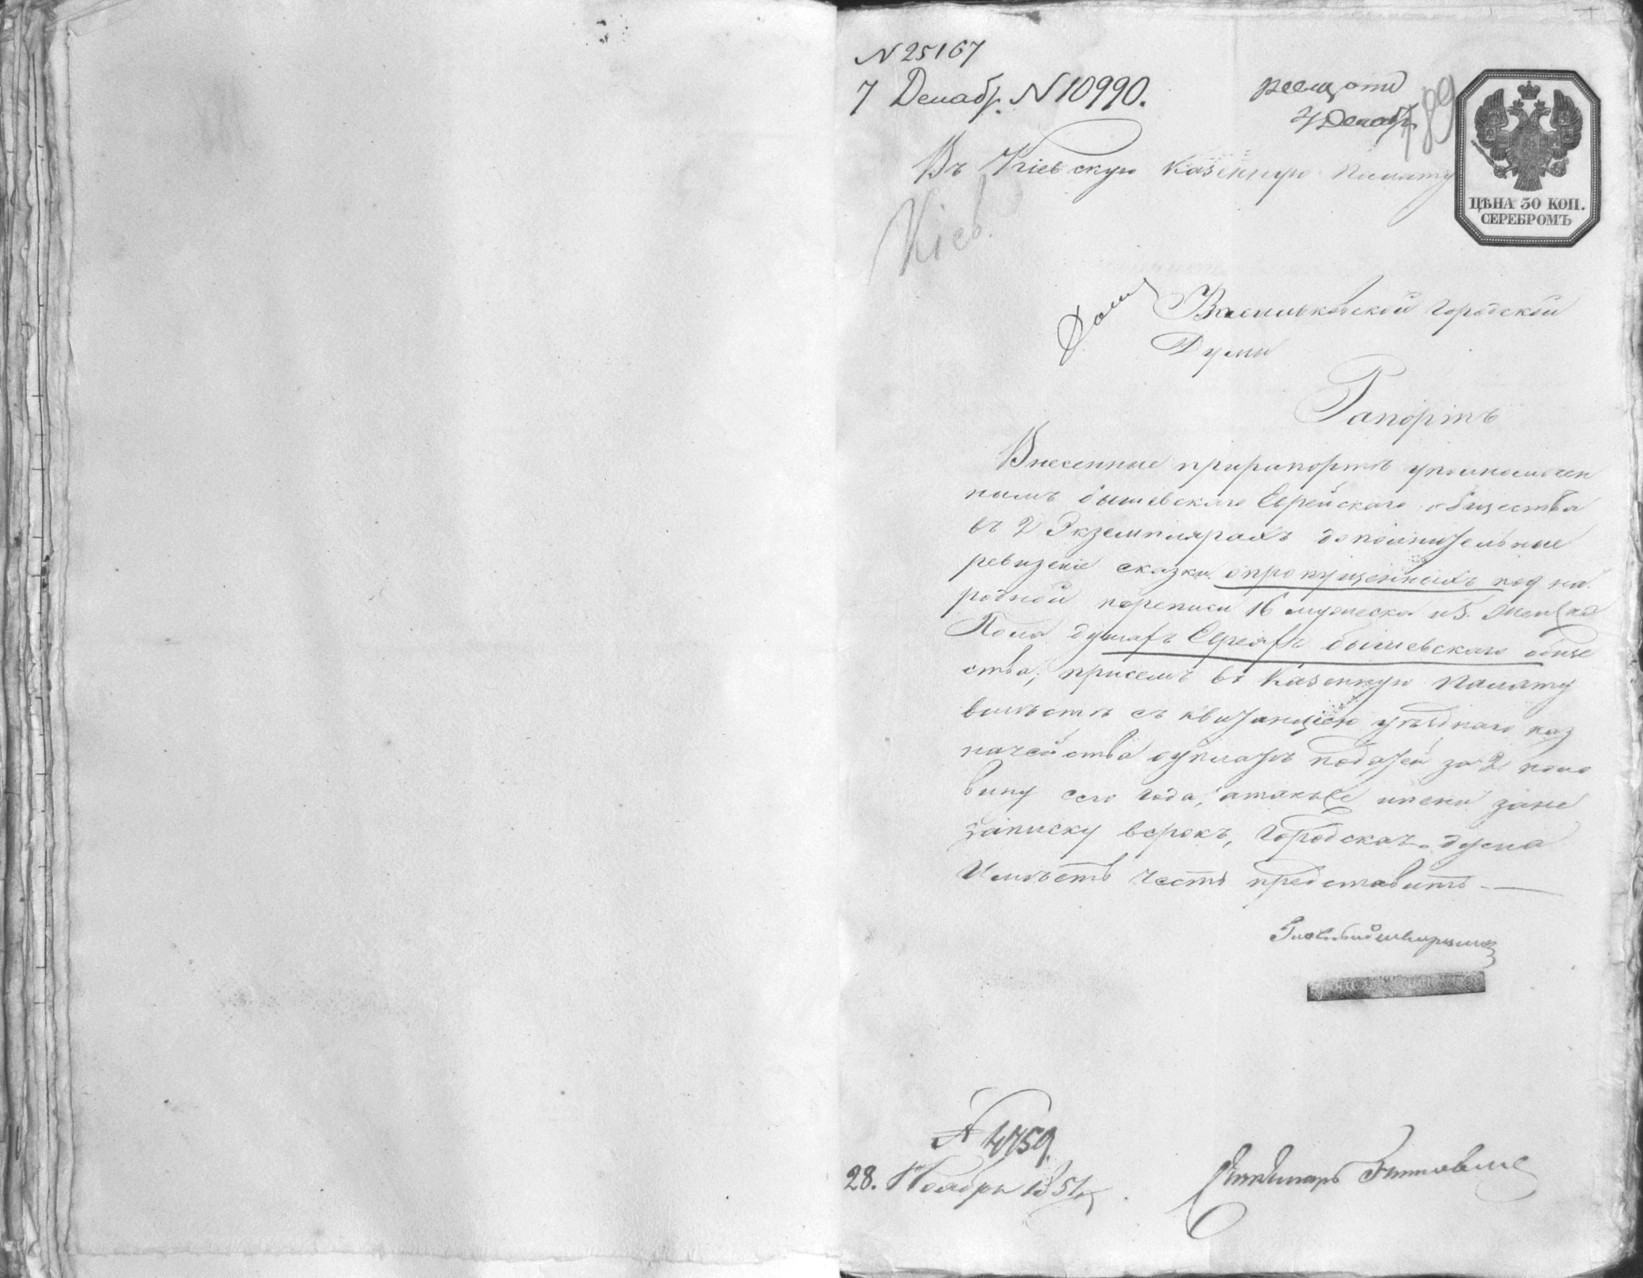 N 25167
7 Декабр. N 10990.
7 Декабр
789
ЦѢНА 30 КОП.
СЕРЕБРОМЪ
Въ Кіевскую Казенную Палату
Кіев.
Васильковской Городской
Думы
Рапортъ
Внесенные при рапортѣ уполномочен
нымъ бышевскаго Еврейскаго общества
въ 2 Экземплярахъ дополнительные
ревизскіе сказки о пропущенныхъ по на
родной переписи 16 мужеска и 5 женска
Пола душахъ Евреяхъ бышевскаго обще
ства, при семъ въ Казенную Палату
вмѣстѣ съ квитанціею уѣзднаго каз
начейства о уплатѣ податей за 2 поло
вину сего года, а также и пени за не
записку в срокъ, Городская Дума
Имѣетъ честь представить
N 4759
28. Ноября 1851